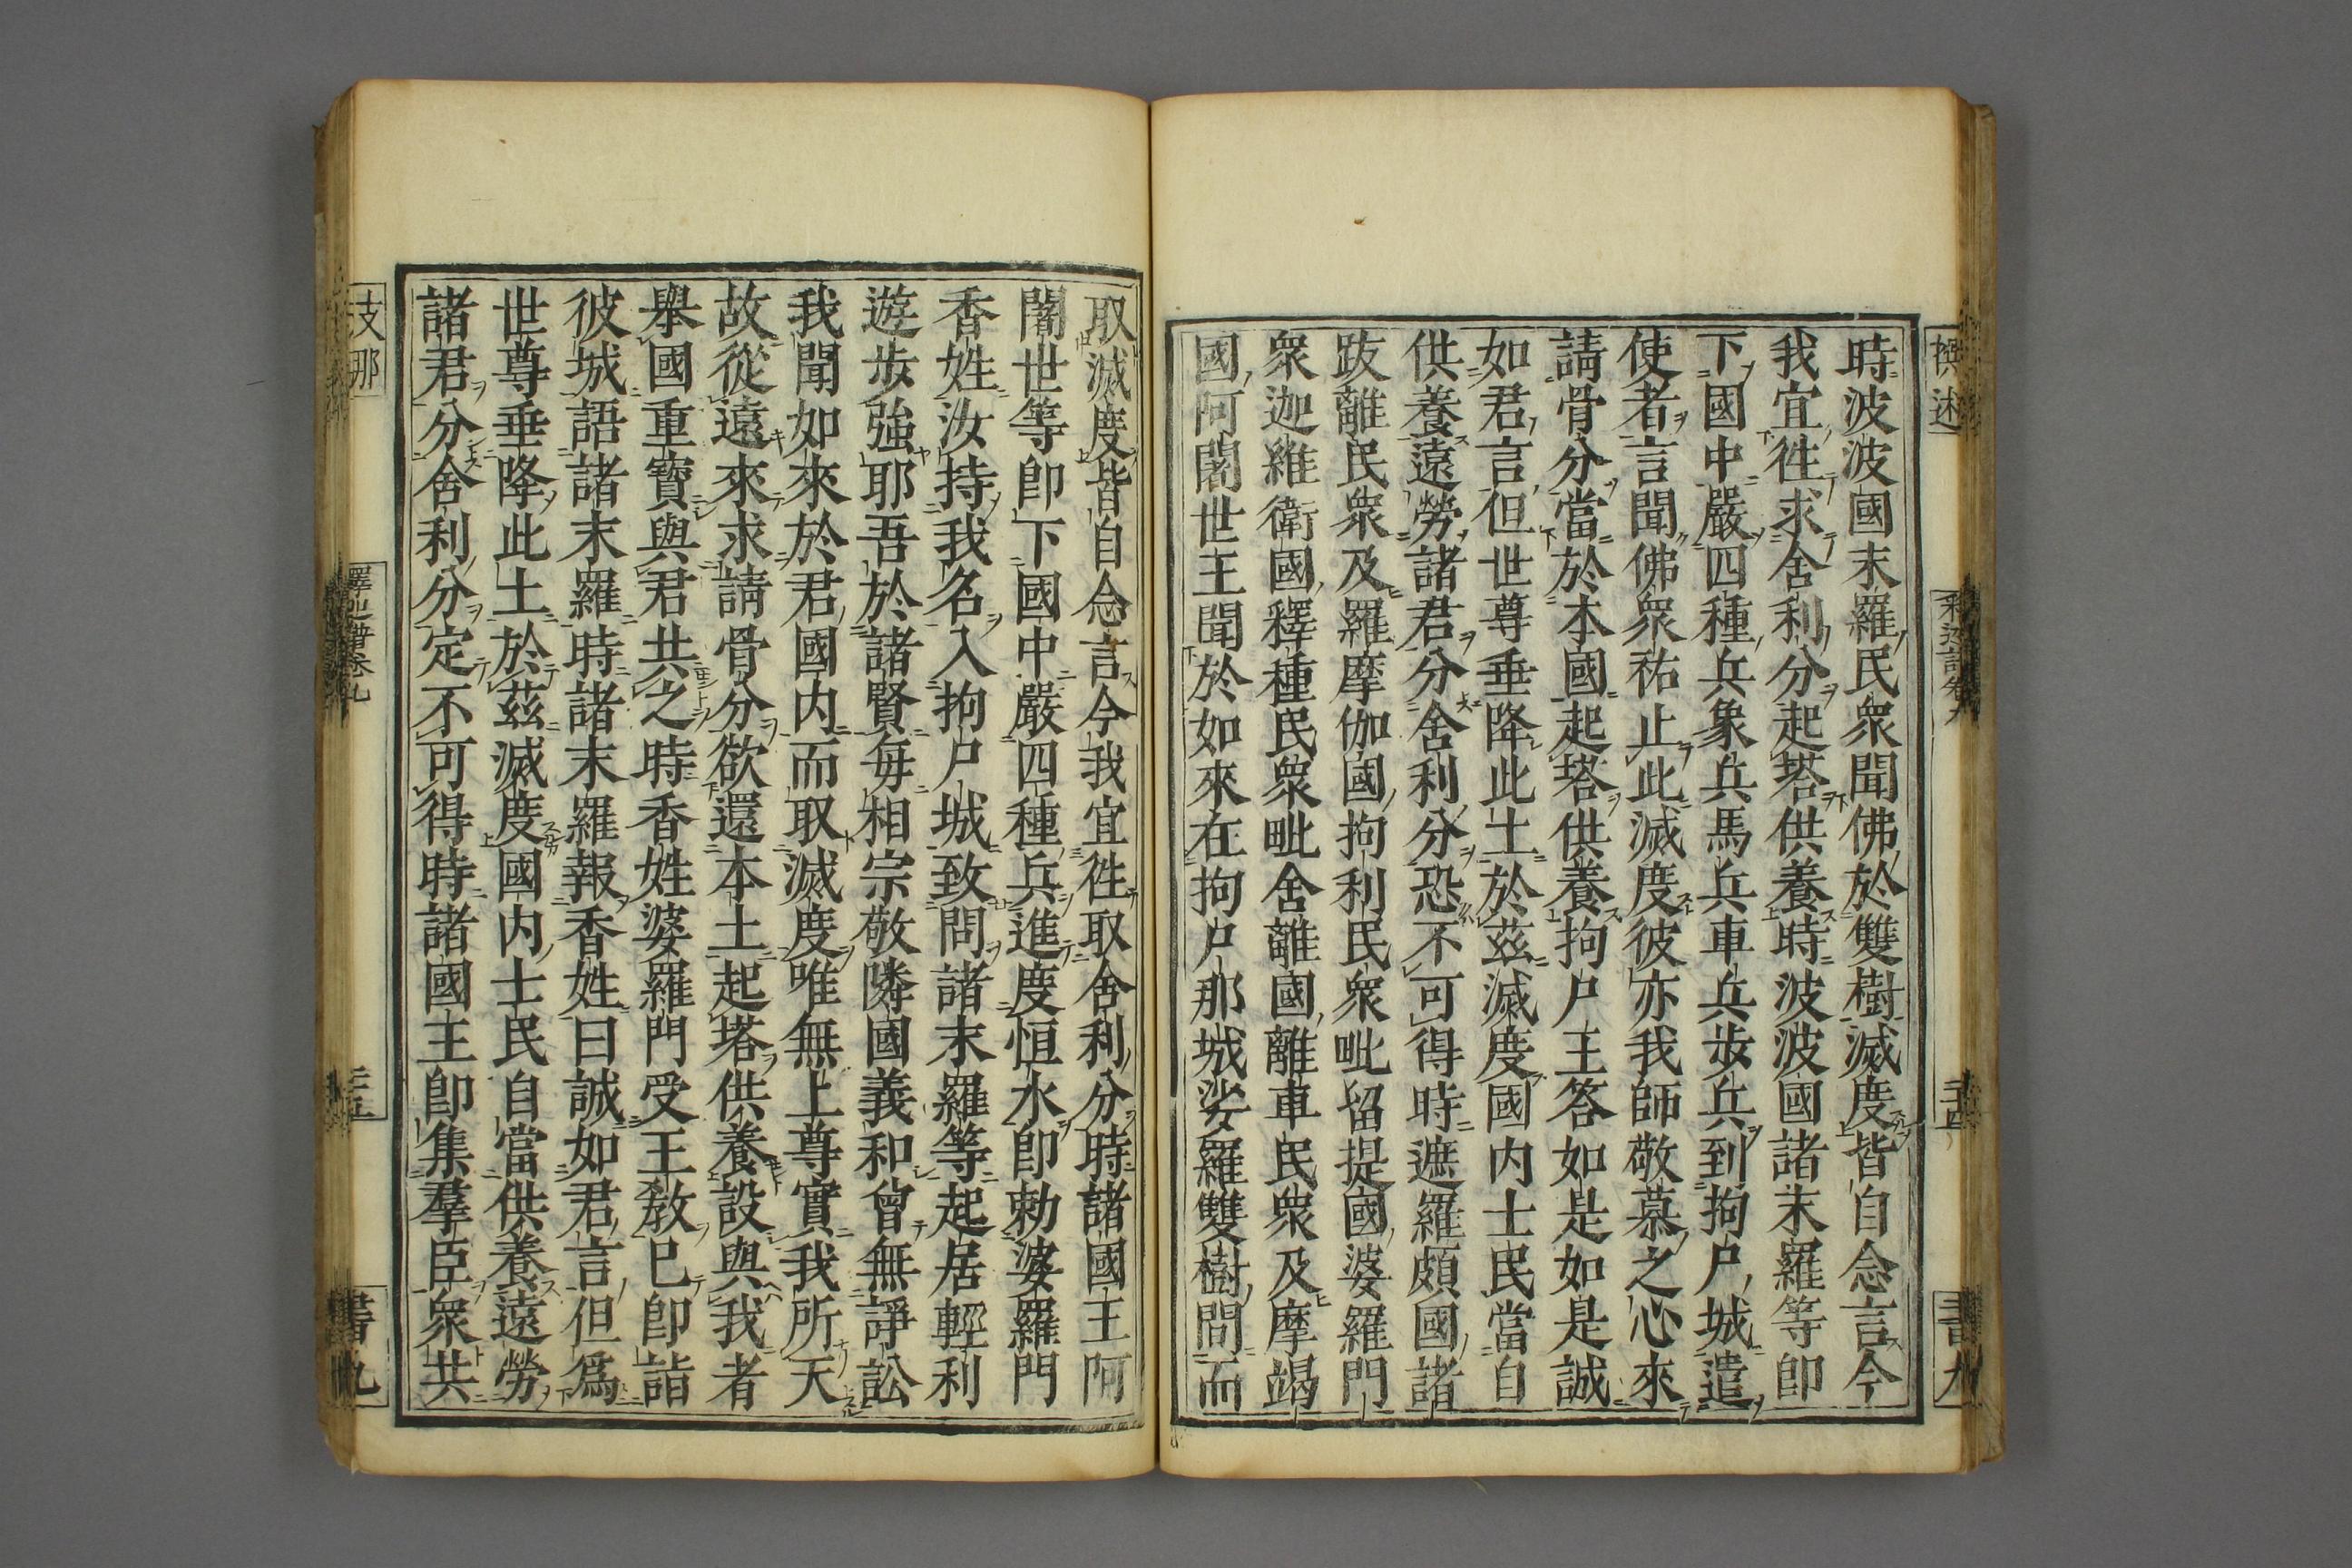 時波波國末羅民衆聞佛於雙樹滅度皆自念言今
我宜徃求舍利分起塔供養時波波國諸末羅等卽
下國中嚴四種兵象兵馬兵車兵步兵到拘尸城遣
使者言聞佛衆祐止此滅度彼亦我師敬慕之心來
請骨分當於本國起塔供養拘尸王答如是如是誠
如君言但世尊垂降此土於茲滅度國内士民當自
供養遠勞諸君分舍利分恐不可得時遮羅頗國諸
跋離民衆及羅摩伽國拘利民衆毗留提國婆羅門
衆迦維衛國釋種民衆毗舍離國離車民衆及摩竭
國阿闍世王聞於如來在拘尸那城娑羅雙樹間而
取滅度皆自念言今我宜徃取舍利分時諸國王阿
闍世等卽下國中嚴四種兵進度恒水卽勅婆羅門
香姓汝持我名入拘尸城致問諸末羅等起居輕利
遊步強耶吾於諸賢每相宗敬隣國義和曾無諍訟
我聞如來於君國内而取滅度唯無上尊實我所天
故從遠來求請骨分欲還本土起塔供養設與我者
舉國重寶與君共之時香姓婆羅門受王教已卽詣
彼城語諸末羅時諸末羅報香姓曰誠如君言但爲
世尊垂降此土於茲滅度國内士民自當供養遠勞
諸君分舍利分定不可得時諸國王卽集羣臣衆共
撰述
二十四
支那